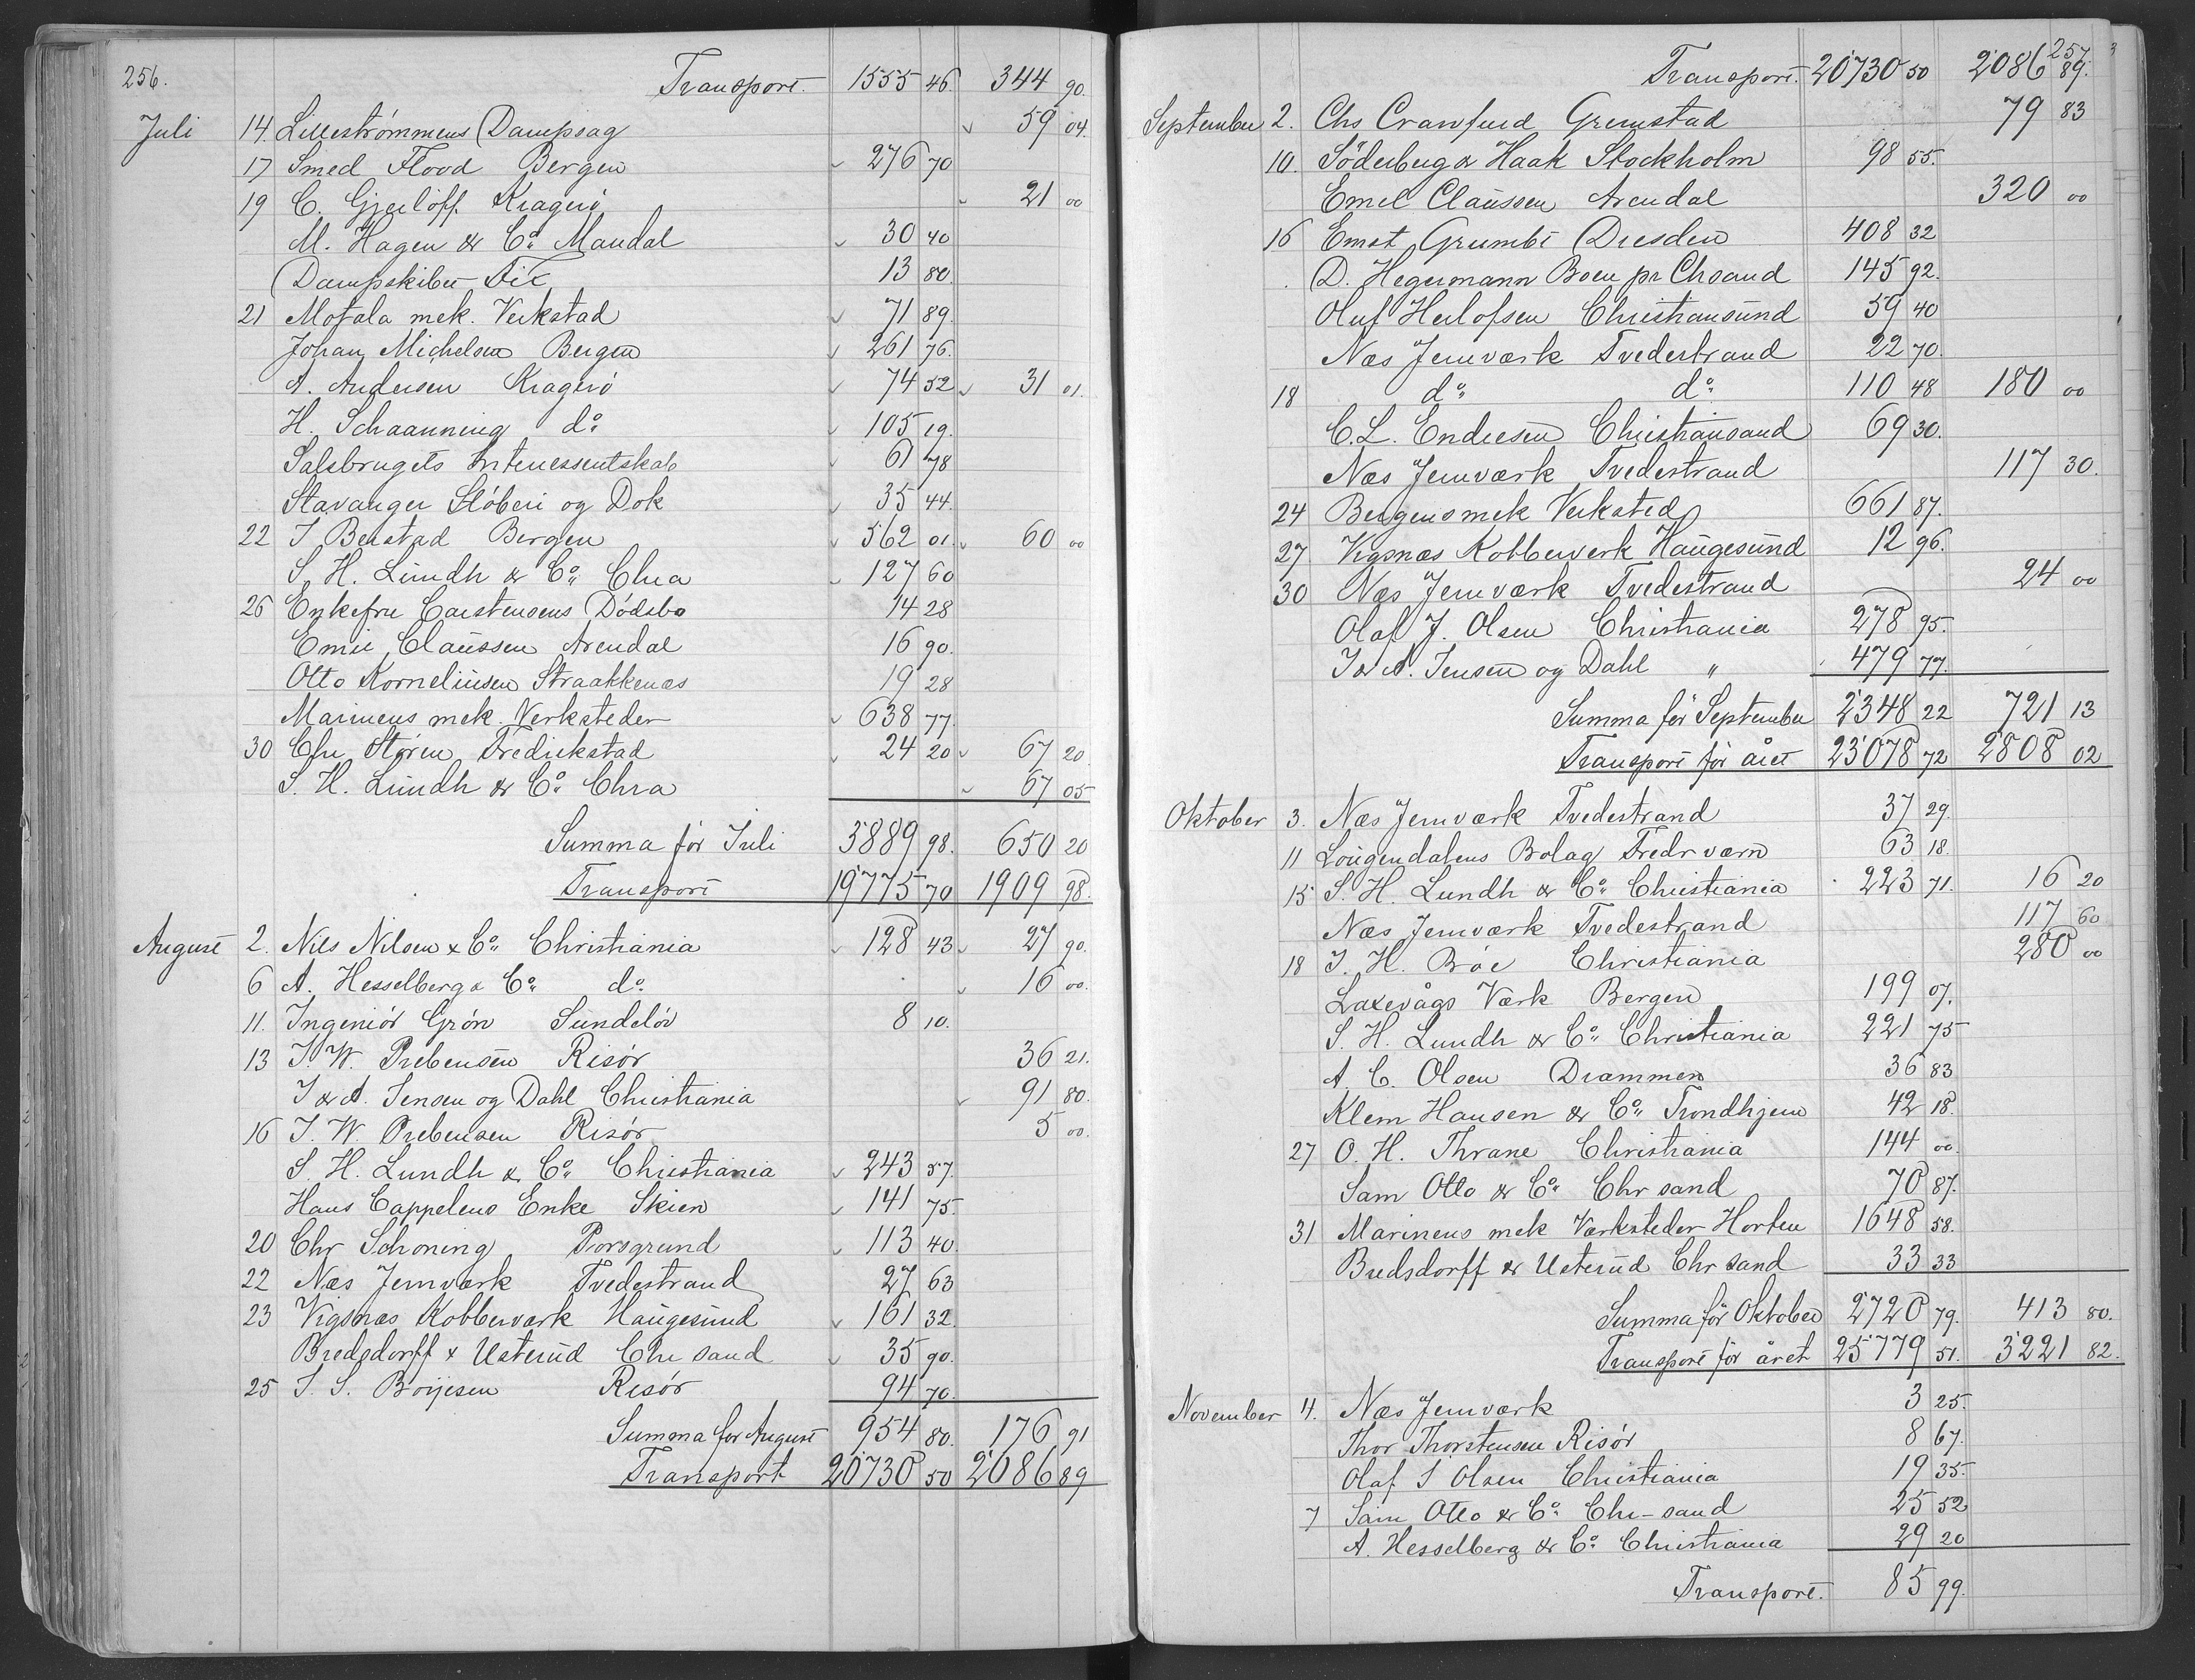 256.
Transport. 1555 46. 344 90.
Juli 14. Lillestrømmens Dampsag 59 04.
17 Smed Flood Bergen 276 70
19 C. Gjerlöff. Kragerø 21 00
M. Hagen & Co. Mandal 30 40
Dampskibet Fix 13 80.
21 Motala mek. Verkstad 71 89.
Johan Michelsen Bergen 261 76.
A. Andersen Kragerø 74 52 31 01.
H. Schaanning do. 105 19.
Salsbrugets Interessentskab 61 78
Stavanger Støberi og Dok 35 44.
22 J Beistad Bergen 562 01. 60 00
S. H. Lundh & Co. Chra 127 60
26 Enkefru Carstensens Dødsbo 14 28
Emil Claussen Arendal 16 90.
Otto Korneliusen Straakkenæs 19 28
Marinens mek. Verksteder 638 77.
30 Chr Støren Fredrikstad 24 20 67 20
S. H. Lundh & Co. Chra 67 05
Summa för Juli 3889 98. 650 20
Transport 19775 70 1909 98.
August 2. Nils Nilsen & Co. Christiania 128 43 27 90.
6 A. Hesselberg & Co. do. 16 00.
11. Ingeniör Grøn Sundeløv 8 10.
13 J. W. Prebensen Risør 36 21.
J & A. Jensen og Dahl Christiania 91 80.
16 J. W. Prebensen Risør 5 00.
S. H. Lundh & Co. Christiania 243 57.
Hans Cappelens Enke Skien 141 75.
20 Chr Schoning Porsgrund 113 40.
22 Næs Jernværk Tvedestrand 27 63
23 Vigsnæs Kobberværk Haugesund 161 32.
Bredsdorff & Usterud Chr sand 35 90.
25 J. S. Boijesen Risør 94 70.
Summa for August 954 80. 176 91
Transport 20730 50 2086 89
257
Transport. 20730 50 2086 89.
September 2. Chs Crawfurd Grimstad 79 83
10. Söderberg & Haak Stockholm 98 55.
Emil Claussen Arendal 320 00
16 Ernst Grumbt Dresden 408 32
D. Hegermann Boen pr Chsand 145 92.
Oluf Herlofsen Christiansund 59 40
Næs Jernværk Tvedestrand 22 70.
18 do. do. 110 48 180 00
C. L. Endresen Christiansand 69 30.
Næs Jernværk Tvedestrand 117 30.
24 Bergens mek Verksted 661 87.
27 Vigsnæs Kobberverk Haugesund 12 96.
30 Næs Jernværk Tvedestrand 24 00
Olaf J. Olsen Christiania 278 95.
J & A. Jensen og Dahl " 479 77.
Summa för September 2348 22 721 13
Transport för året 23078 72 2808 02
Oktober 3. Næs Jernværk Tvedestrand 37 29.
11 Lougendalens Bolag Fredr værn 63 18.
15 S. H. Lundh & Co. Christiania 223 71. 16 20
Næs Jernværk Tvedestrand 117 60
18 J. H. Bröe Christiania 280 00
Laxevågs Værk Bergen 199 07.
S. H. Lundh & Co. Christiania 221 75
A. C. Olsen Drammen 36 83
Klem Hansen & Co. Trondhjem 42 18.
27 O. H. Thrane Christiania 144 00.
Sam Otto & Co. Chr sand 70 87.
31 Marinens mek Værksteder Horten 1648 58.
Bredsdorff & Usterud Chr sand 33 33
Summa för Oktober 2720 79. 413 80.
Transport för året 25779 51. 3221 82.
November 4. Næs Jernværk 3 25.
Thor Thorstensen Risör 8 67.
Olaf J Olsen Christiania 19 35.
7 Sam Otto & Co. Chr-sand 25 52
A. Hesselberg & Co. Christiania 29 20
Transport. 85 99.